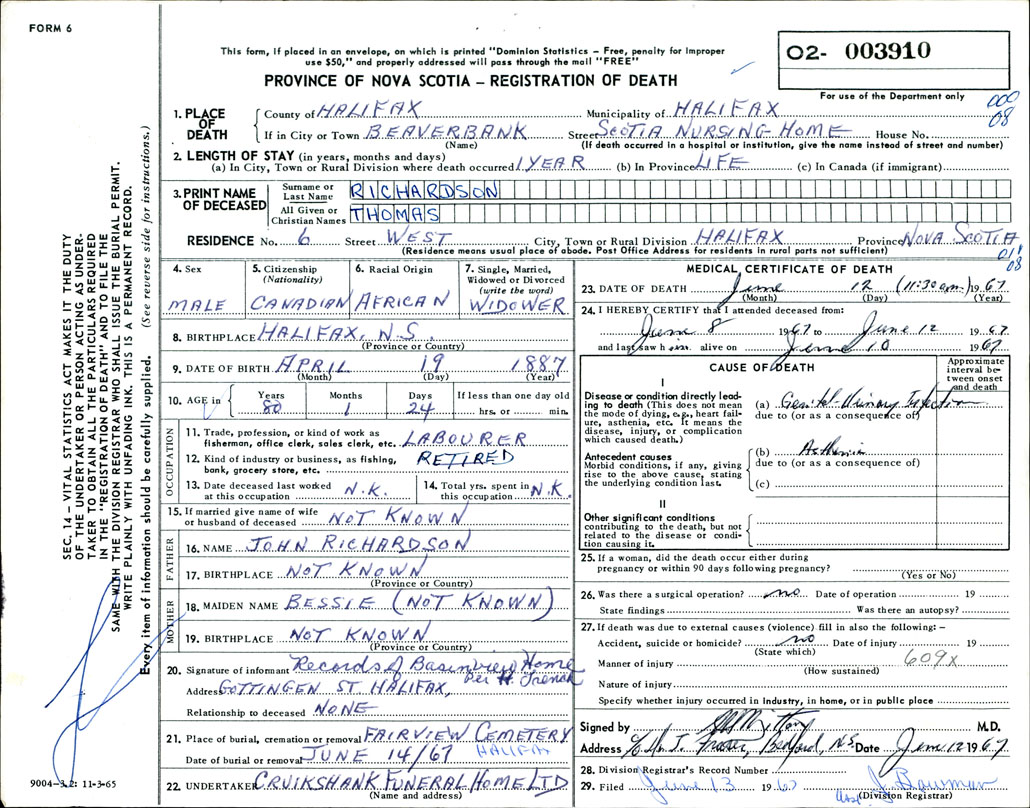 FORM 6
This form, if placed in an envelope, on which is printed "Dominion Statistics – Free, penalty for improper
use $50," and properly addressed will pass through the mail "FREE"
PROVINCE OF NOVA SCOTIA – REGISTRATION OF DEATH
02- 003910
For use of the Department only
000
08
1. PLACE OF DEATH
County of HALIFAX Municipality of HALIFAX
If in City or Town BEAVERBANK Street SCOTIA NURSING HOME House No.
(Name) (If death occurred in a hospital or institution, give the name instead of street and number)
2. LENGTH OF STAY (in years, months and days)
(a) In City, Town or Rural Division where death occurred 1 YEAR (b) In Province LIFE (c) In Canada (if immigrant)
3. PRINT NAME OF DECEASED
Surname or Last Name RICHARDSON
All Given or Christian Names THOMAS
RESIDENCE No. 6 Street WEST City, Town or Rural Division HALIFAX Province NOVA SCOTIA
(Residence means usual place of abode. Post Office Address for residents in rural parts not sufficient)
01
08
4. Sex
MALE
5. Citizenship
(Nationality)
CANADIAN
6. Racial Origin
AFRICAN
7. Single, Married,
Widowed or Divorced
(write the word)
WIDOWER
8. BIRTHPLACE HALIFAX, N.S.
(Province or Country)
9. DATE OF BIRTH APRIL 19 1887
(Month) (Day) (Year)
10. AGE in Years 80 Months 1 Days 24 If less than one day old
hrs. or min.
OCCUPATION
11. Trade, profession, or kind of work as
fisherman, office clerk, sales clerk, etc. LABOURER
12. Kind of industry or business, as fishing,
bank, grocery store, etc. RETIRED
13. Date deceased last worked
at this occupation N.K.
14. Total yrs. spent in
this occupation N.K.
15. If married give name of wife
or husband of deceased NOT KNOWN
FATHER
16. NAME JOHN RICHARDSON
17. BIRTHPLACE NOT KNOWN
(Province or Country)
MOTHER
18. MAIDEN NAME BESSIE (NOT KNOWN)
19. BIRTHPLACE NOT KNOWN
(Province or Country)
20. Signature of informant Records of Basinview Home
Per H. French
Address GOTTINGEN ST HALIFAX,
Relationship to deceased NONE
21. Place of burial, cremation or removal FAIRVIEW CEMETERY
HALIFAX
Date of burial or removal JUNE 14/67
22. UNDERTAKER CRUIKSHANK FUNERAL HOME LTD
(Name and address)
MEDICAL CERTIFICATE OF DEATH
23. DATE OF DEATH June 12 (11:30 am) 1967
(Month) (Day) (Year)
24. I HEREBY CERTIFY that I attended deceased from:
June 8 1967 to June 12 1967
and last saw him alive on June 10 1967
CAUSE OF DEATH
Approximate
interval be-
tween onset
and death
I
Disease or condition directly lead-
ing to death (This does not mean
the mode of dying, e.g., heart fail-
ure, asthenia, etc. It means the
disease, injury, or complication
which caused death.)
(a) Genital-Urinary Infection
due to (or as a consequence of)
Antecedent causes
Morbid conditions, if any, giving
rise to the above cause, stating
the underlying condition last.
(b) Asthenia
due to (or as a consequence of)
(c)
II
Other significant conditions
contributing to the death, but not
related to the disease or condi-
tion causing it.
25. If a woman, did the death occur either during
pregnancy or within 90 days following pregnancy?
(Yes or No)
26. Was there a surgical operation? no Date of operation 19
State findings Was there an autopsy?
27. If death was due to external causes (violence) fill in also the following: –
Accident, suicide or homicide? no Date of injury 19
(State which)
Manner of injury 609x
(How sustained)
Nature of injury
Specify whether injury occurred in industry, in home, or in public place
Signed by M.D.
Address Bedford, N.S. Date June 12 1967
28. Division Registrar's Record Number
29. Filed June 13 1967 J. Bowman
(Division Registrar)
SEC. 14 – VITAL STATISTICS ACT MAKES IT THE DUTY
OF THE UNDERTAKER OR PERSON ACTING AS UNDER-
TAKER TO OBTAIN ALL THE PARTICULARS REQUIRED
IN THE "REGISTRATION OF DEATH" AND TO FILE THE
SAME WITH THE DIVISION REGISTRAR WHO SHALL ISSUE THE BURIAL PERMIT.
WRITE PLAINLY WITH UNFADING INK. THIS IS A PERMANENT RECORD.
Every item of information should be carefully supplied. (See reverse side for instructions.)
9004-3.2: 11-3-65